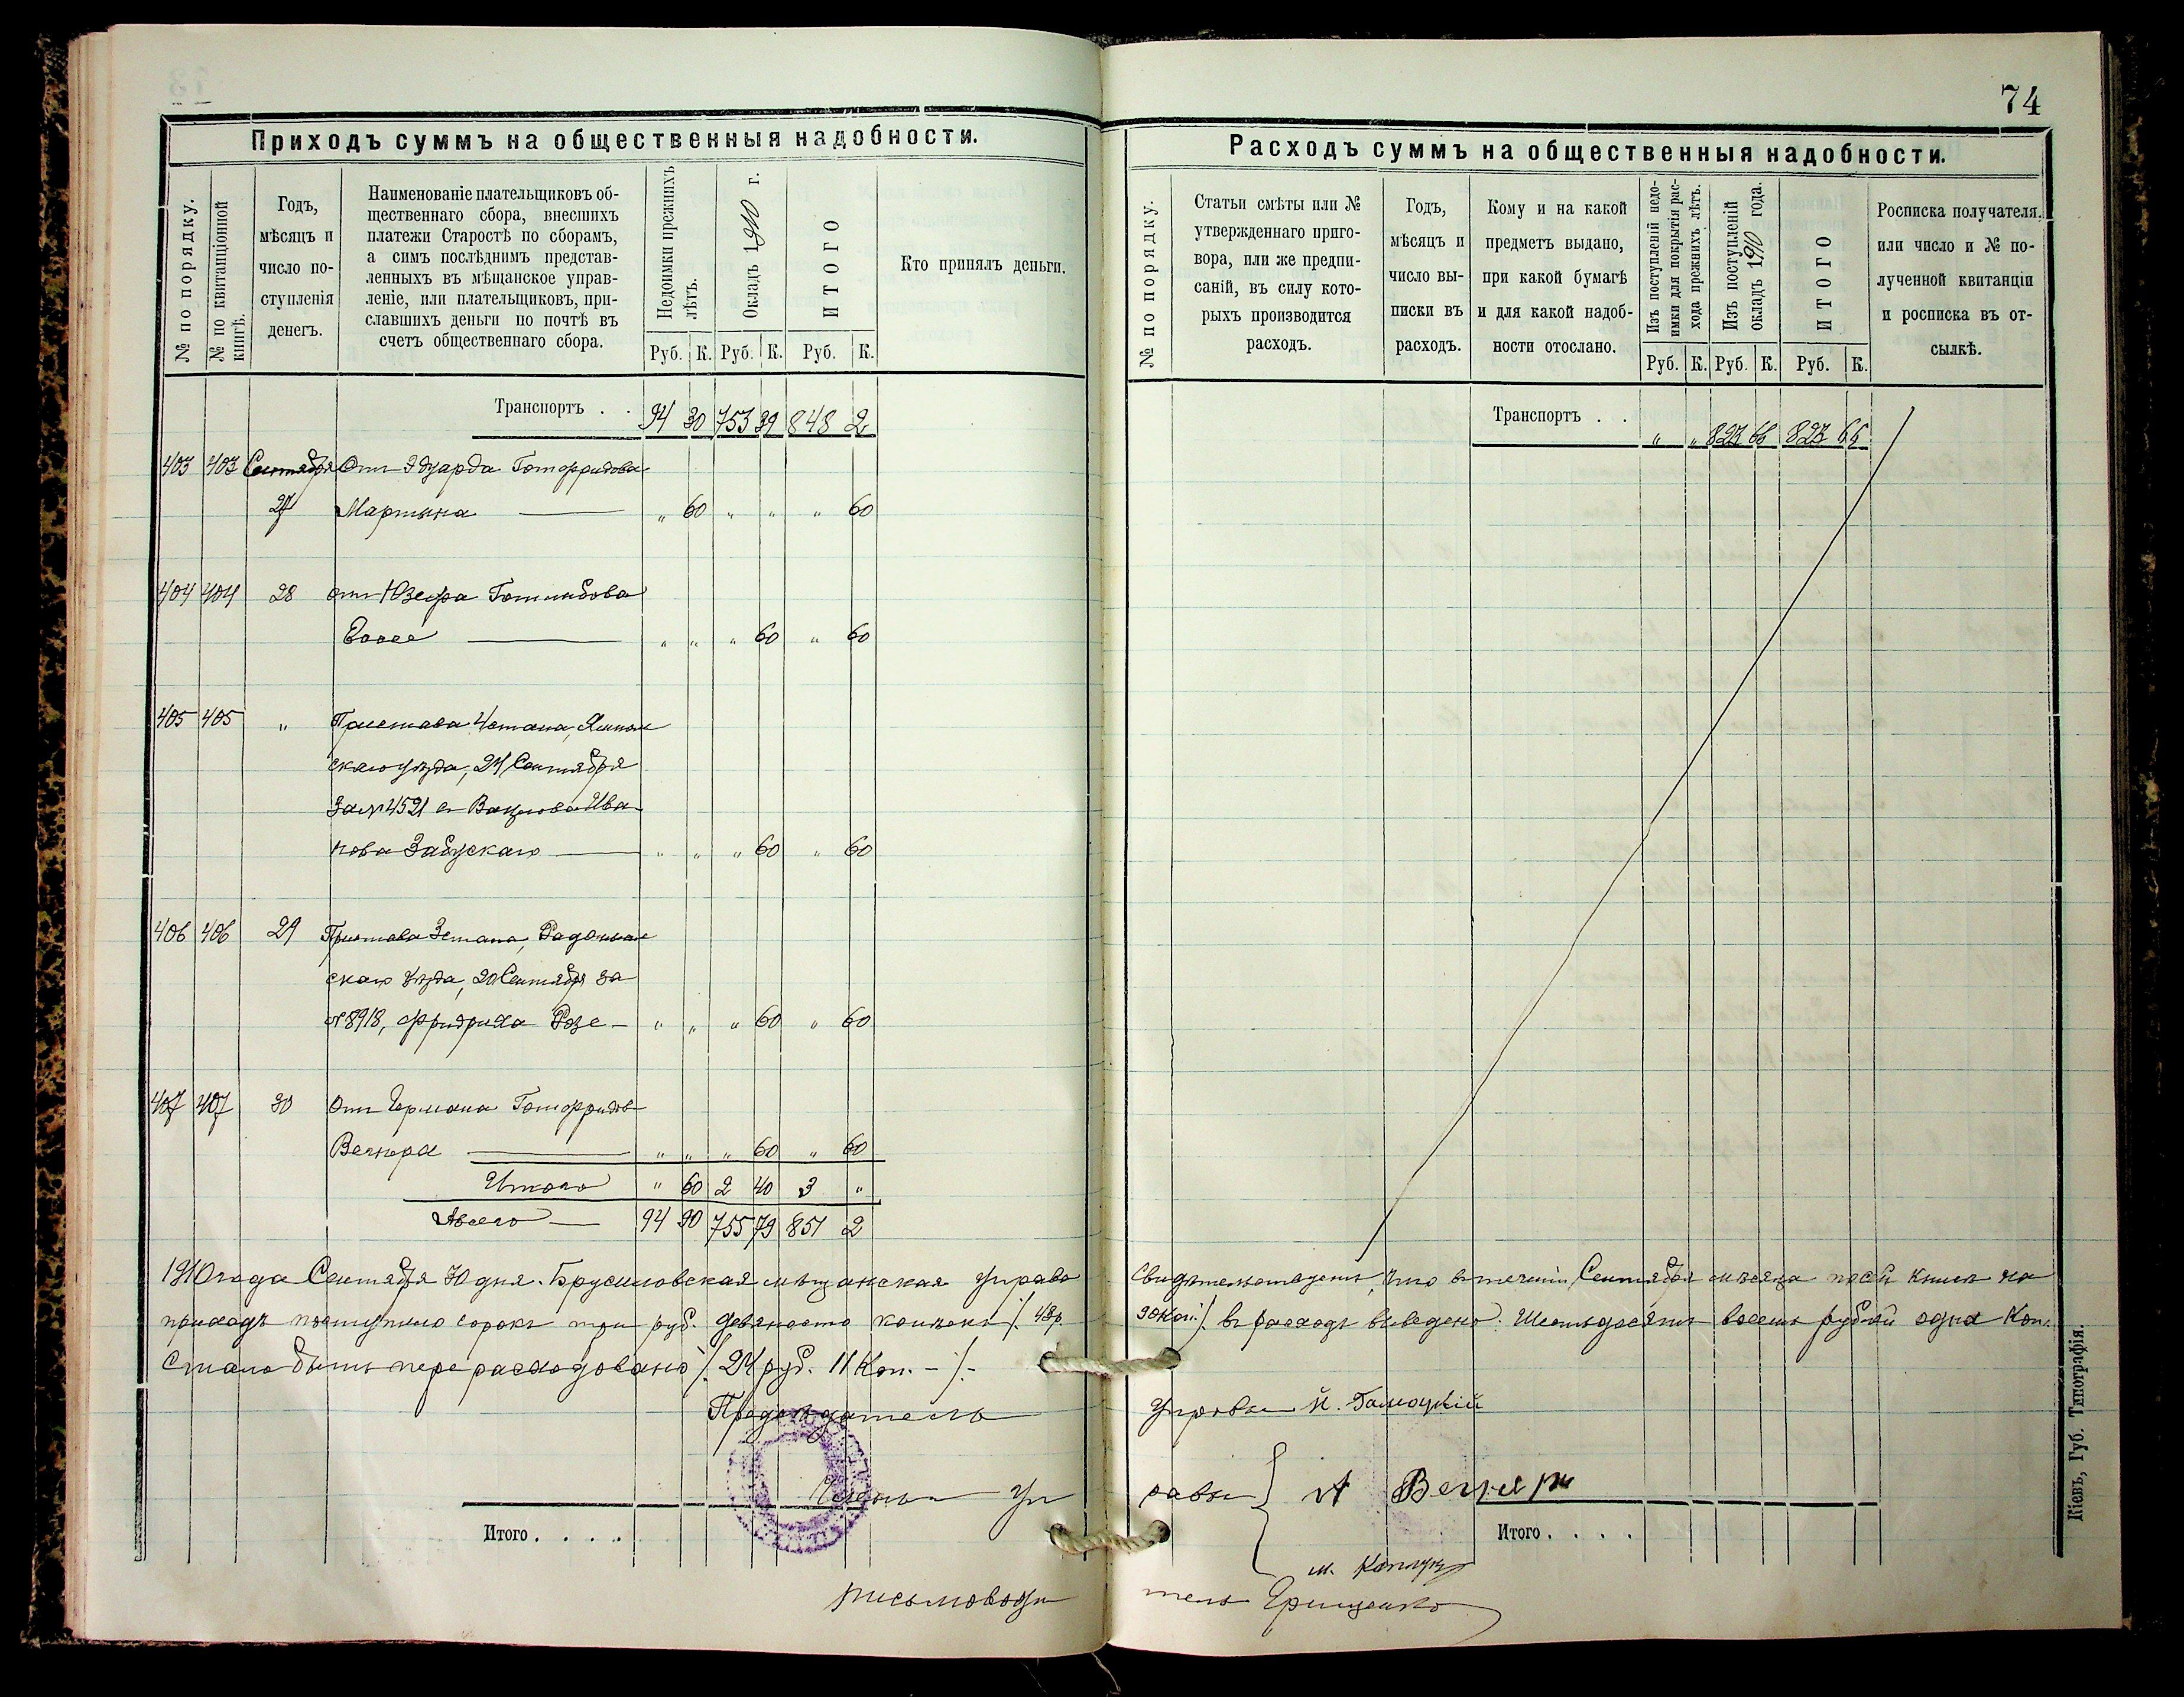 74
Приходъ суммъ на общественныя надобности.
№ по порядку.
№ по квитанціонной книгѣ.
Годъ,
мѣсяцъ и
число по-
ступленія
денегъ.
Наименованіе плательщиковъ об-
щественнаго сбора, внесшихъ
платежи Старостѣ по сборамъ,
а симъ послѣднимъ представ-
ленныхъ въ мѣщанское управ-
леніе, или плательщиковъ, при-
славшихъ деньги по почтѣ въ
счетъ общественнаго сбора.
Недоимки прежнихъ лѣтъ.
Окладъ 1910 г.
ИТОГО
Руб. К. Руб. К. Руб. К.
Кто принялъ деньги.
Транспортъ . . 94 30 753 39 848 2
403 403 Сентября Отъ Эдуарда Готфридова
27 Мартына „ 60 „ „ „ 60
404 404 28 отъ Юзефа Готлибова
„ „ „ 60 „ 60
405 405 „ Пристава 4 стана,
скаго уѣзда, 24 Сентября
За № 4521 Ива-
нова Забускаго „ „ „ 60 „ 60
406 406 29 Пристава 3 стана, Радомысль-
скаго уѣзда, 20 Сентября за
№ 8918, Фридриха Розе „ „ „ 60 „ 60
407 407 30 Отъ Германа Готфридов
Вегнера „ „ „ 60 „ 60
Итого „ 60 2 40 3 „
Всего 94 90 755 79 851 2
1910 года Сентября 30 дня. Брусиловская мѣщанская управа
приходъ поступило сорокъ три руб. девяносто копѣекъ /. 43 р
Стало быть перерасходовано /. 24 руб. 11 Коп. - /. -
Предсѣдатель
Члены Уп
письмоводи
Итого . . . . .
Расходъ суммъ на общественныя надобности.
№ по порядку.
Статьи смѣты или №
утвержденнаго приго-
вора, или же предпи-
саній, въ силу кото-
рыхъ производится
расходъ.
Годъ,
мѣсяцъ и
число вы-
писки въ
расходъ.
Кому и на какой
предметъ выдано,
при какой бумагѣ
и для какой надоб-
ности отослано.
Изъ поступленій недо-
имки для покрытія рас-
хода прежнихъ лѣтъ.
Изъ поступленій
окладъ 1910 года.
ИТОГО
Руб. К. Руб. К. Руб. К.
Росписка получателя,
или число и № по-
лученной квитанціи
и росписка въ от-
сылкѣ.
Транспортъ . . „ „ 827 66 827 66
свидѣтельствуетъ, что въ теченіи Сентября мѣсяца по сей книгѣ на
90 коп. /. въ расходъ выведено: Шестьдесятъ восемь рублей одна Коп.
управы
равы } А Вегнеръ
Итого . . . .
тель Грищенко
Кіевъ, Губ. Типографія.